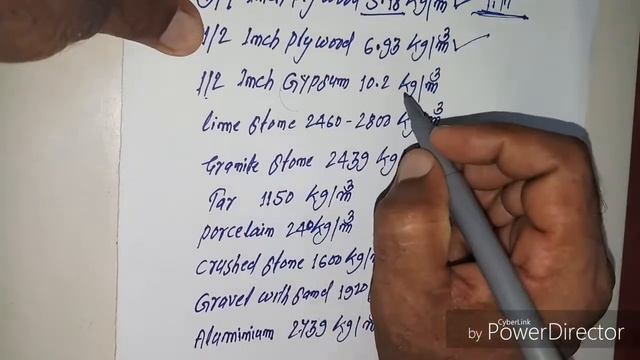 Inch Plywood 5.98 kg/m³
1/2 Inch Plywood 6.93 kg/m³
1/2 Inch Gypsum 10.2 kg/m³
lime stone 2460-2800 kg/m³
Granite stone 2439 kg
Tar 1150 kg/m³
porcelain 240kg/m³
crushed stone 1600 kg/m
Gravel with sand 1920
Aluminium 2739 kg/m
CyberLink
by PowerDirector